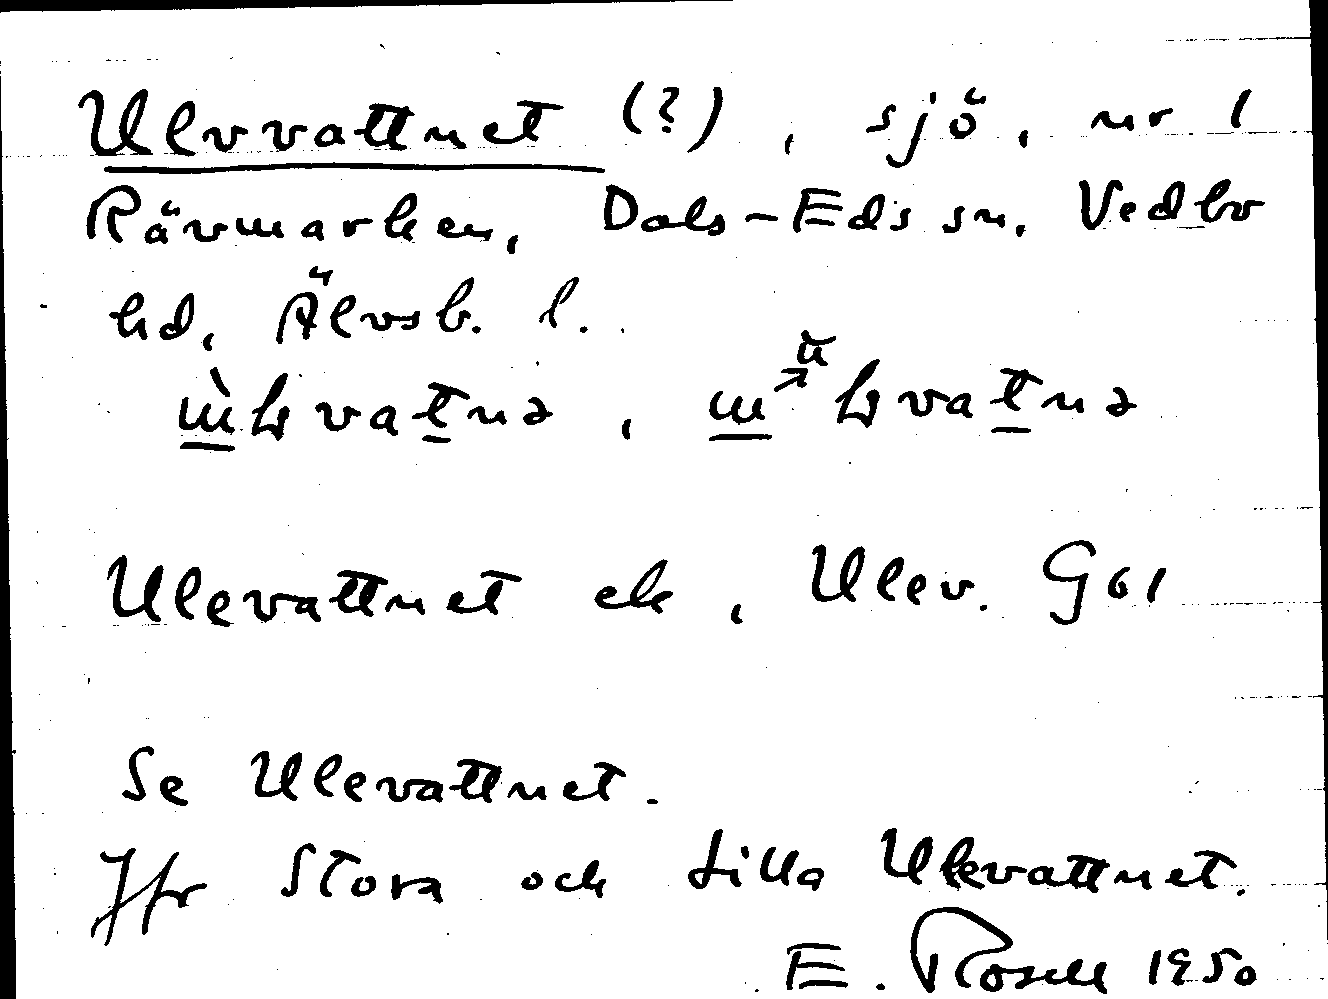 Ulvvattnet (?), sjö, nr 1
Rävmarken, Dals-Eds sn, Vedbo
hd, Älvsb. l.
vattnə, vattnə
Ulevattnet ek, Ulev. G61
Se Ulevattnet.
Jfr Stora och Lilla Ulevattnet.
E. Rosell 1950